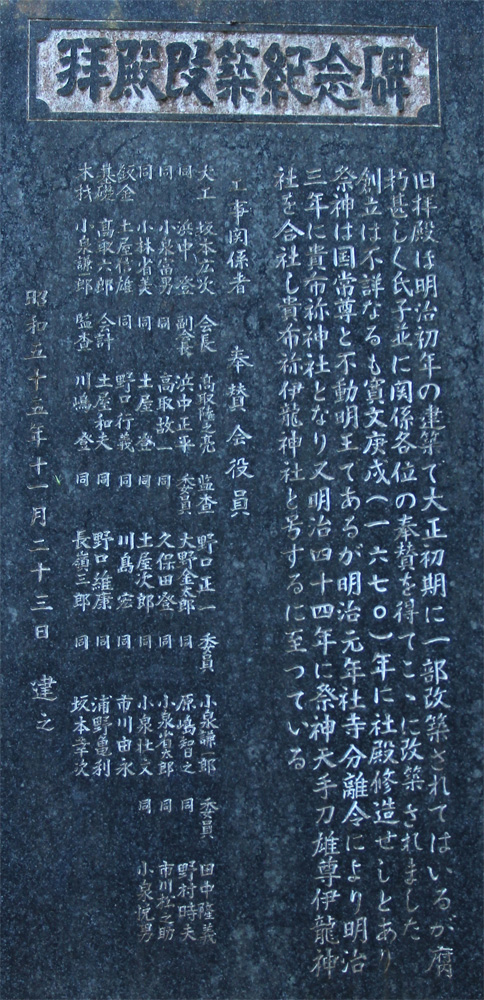 拝殿改築紀念碑
旧拝殿は明治初年の建築で大正初期に一部改築されてはいるが腐
朽甚しく氏子並に関係各位の奉賛を得てこゝに改築されました
創立は不詳なるも寛文庚戌(一六七〇)年に社殿修造せしとあり
祭神は国常尊と不動明王であるが明治元年社寺分離令により明治
三年に貴布祢神社となり又明治四十四年に祭神天手刀雄尊伊龍神
社を合社し貴布祢伊龍神社と号するに至つている
工事関係者 奉賛会役員
大工 坂本宏次 会長 高取隆之亮 監査 野口正一 委員 小泉謙一郎 委員 田中隆義
同 浜中登 副会長 浜中正平 委員 大野金太郎 同 原嶋智之 同 野村時夫
同 小泉富男 同 高取故一 同 久保田登 同 小泉省郎 同 市川松之助
同 小林省美 同 土屋登 同 土屋次郎 同 小泉壮文 同 小泉悦男
鈑金 土屋信雄 同 野口行義 同 川島宏 同 市川由永
基礎 高取六郎 会計 土屋和夫 同 野口維康 同 浦野亀利
木材 小泉謙郎 監査 川嶋登 同 長嶺三郎 同 坂本幸次
昭和五十五年十一月二十三日 建之